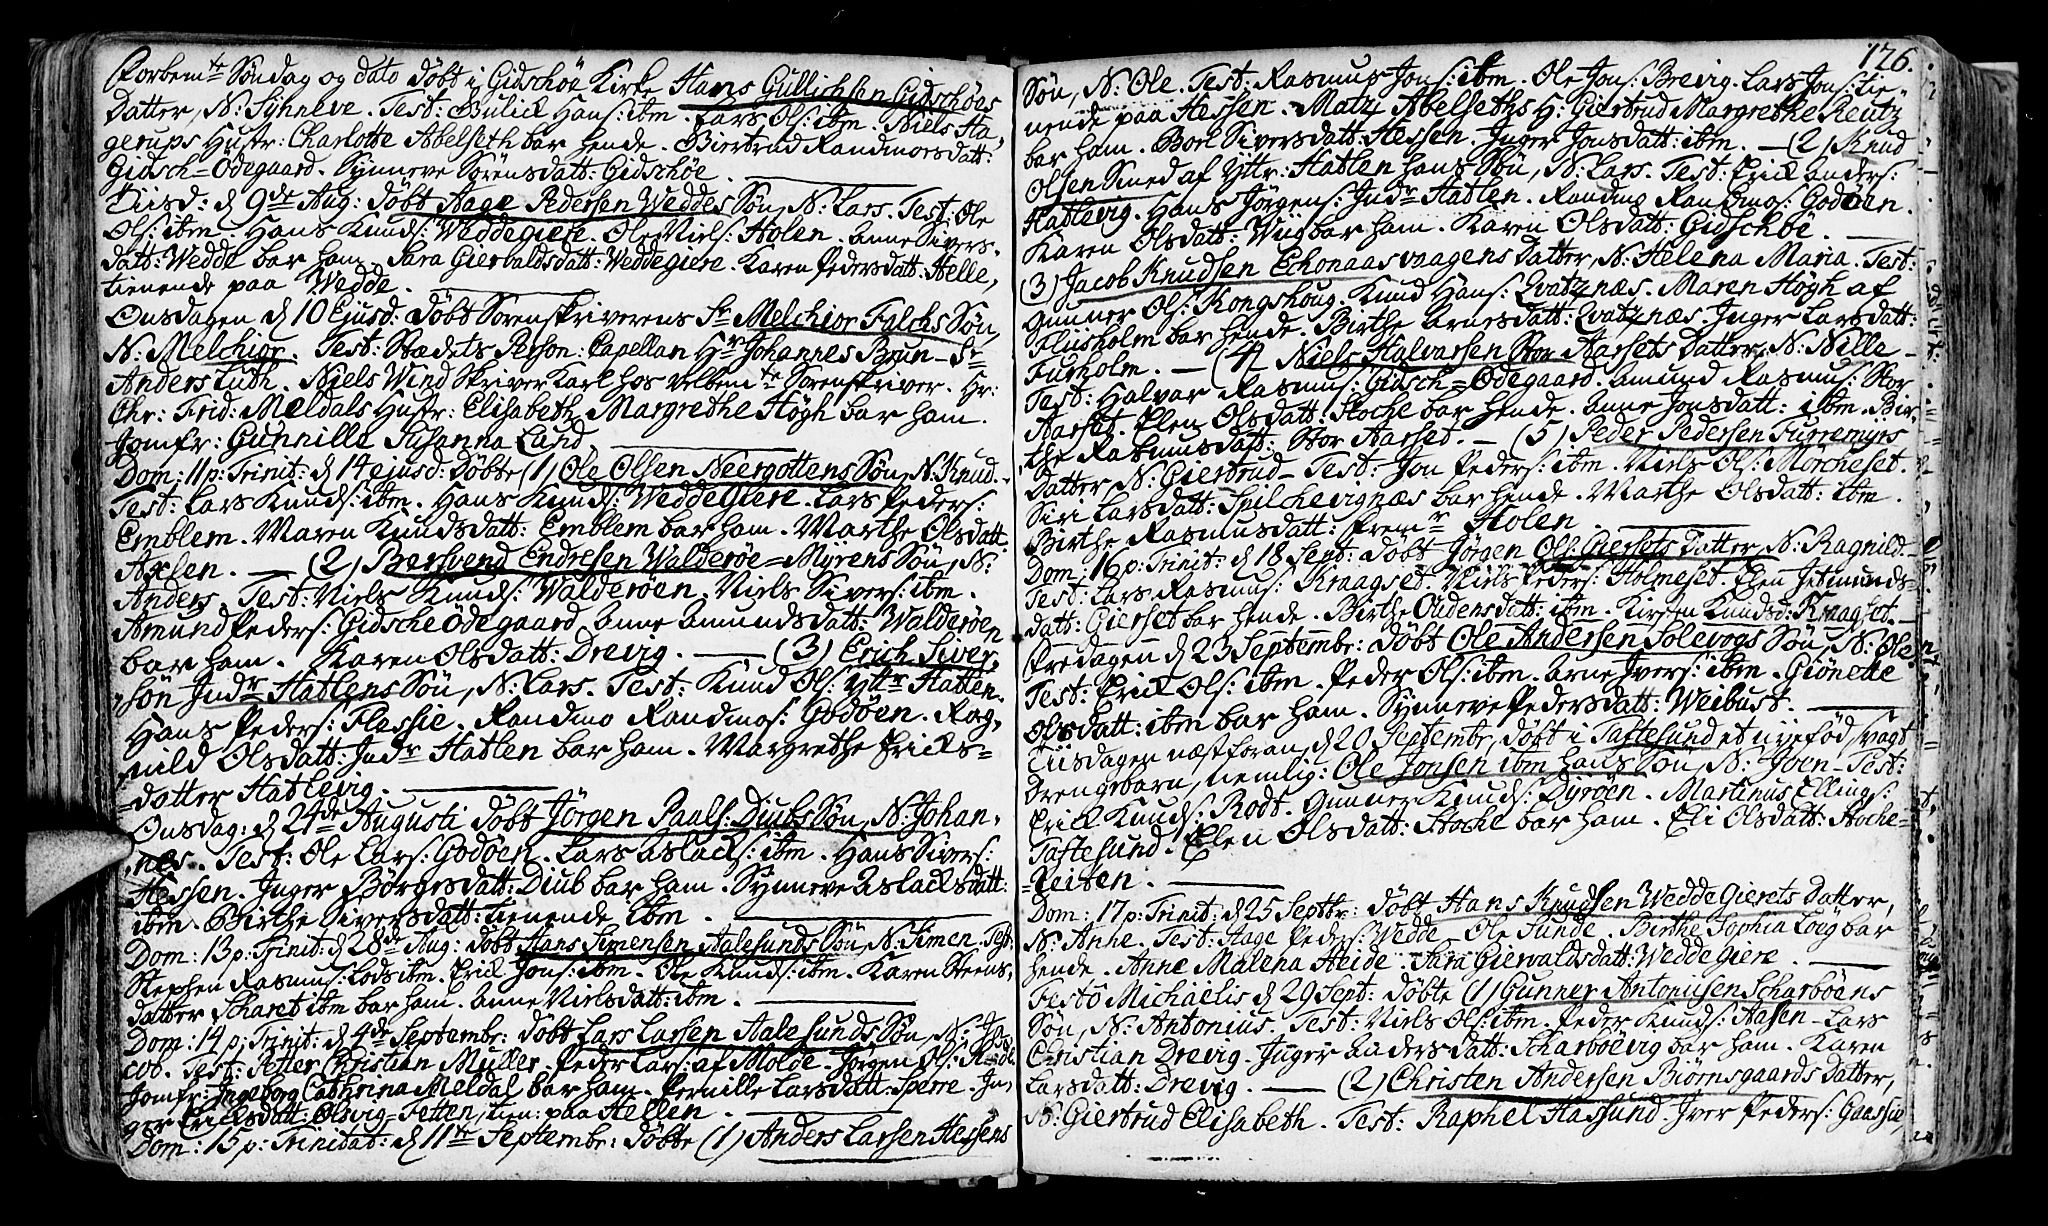 Forbem.te Söndag og dato döbt i Gidschöe Kirke Hans Gullichsen Gidschöes
Datter, N: Synneve. Test: Gulick Hans: ibm. Lars Ols: ibm. Niels Ha,
gerups Hustr: Charlotte Abelseth bar hende. Giertrud Randmorsdatt:
Gidsch=Ödegaard. Synneve Sörensdatt: Gidschöe.
Tiisd: d 9de Aug: döbt Aage Pedersen Weddes Sön, N: Lars. Test: Ole
Ols: ibm. Hans Knuds: Weddegiere. Ole Niels: Holen. Anne Sivers,
datt: Wedde bar ham. Sara Giervaldsdatt: Weddegiere. Karen Pedersdatt: Helle,
tienende paa Wedde.
Onsdagen d 10 Ejusd: döbt Sorenskriverens Sr Melchior Falchs Sön,
N: Melchior. Test: Stædets Person: Capellan Hr Johannes Brun - Sr
Anders Luth. Niels Wind Skriver Karl hos velbem.te Sorenskriver. Hr:
Chr: Frid: Meldals Hustr: Elisabeth Margrethe Högh bar ham.
Jomfr: Gunnille Susanna Lund.
Dom: 11 p: Trinit: d 14 ejusd: döbte (1) Ole Olsen Neergottens Sön, N: Knud.
Test: Lars Knuds: ibm. Hans Knuds: Weddegiere. Lars Peders:
Emblem. Maren Knudsdatt: Emblem bar ham. Marthe Olsdatt:
Axlen. — (2) Bersvend Endresen Walderöe=Myrens Sön, N:
Anders. Test: Niels Knuds: Walderöen. Niels Sivers: ibm.
Amund Peders: Gidsche Ödegaard. Anne Amundsdatt: Walderöen
bar ham. Karen Olsdatt: Drevig. — (3) Erich Siver,
sön Indr Hatlens Sön, N: Lars. Test: Knud Ols: Yttr Hatlen.
Hans Peders: Flessie. Randmo Randmos: Godöen. Rag,
nild Olsdatt: Indr Hatlen bar ham. Margrethe Ericks=
=datter Hatlevig.
Onsdag: d 24de Augusti döbt Jörgen Paals: Diubs Sön, N: Johan,
nes. Test: Ole Lars: Godöen. Lars Aslacks: ibm. Hans Sivers:
Hessen. Inger Börgesdatt: Diub bar ham. Synneve Aslacksdatt:
ibm. Birthe Siversdatt: tienende ibm.
Dom: 13 p: Trinit: d 28de Aug: döbt Hans Simensen Aalesunds Sön, N: Simen. Test:
Stephen Rasmus: Lods ibm. Erick Jons: ibm. Ole Knuds: ibm. Karen Steens,
datter Skaret ibm bar ham. Anne Nielsdatt: ibm.
Dom: 14 p: Trinit: d 4de Septembr: döbt Lars Larsen Aalesunds Sön, N: Ja
cob. Test: Petter Christian Muller. Peder Lars: af Molde. Jörgen Ols:
Jomfr: Ingeborg Cathrina Meldal bar ham. Pernille Larsdatt: Sperre. In,
ger Ericksdatt: Olsvig=Fetten, tien: paa Hellen.
Dom: 15 p: Trinitat: d 11te Septembr: döbte (1) Anders Larsen Hessens
126.
Sön, N: Ole. Test: Rasmus Jons: ibm. Ole Jons: Brevig. Lars Jons: tie=
nende paa Hessen. Matz Abelseths H: Giertrud Margrethe Reutz
bar ham. Borl Siversdatt: Hessen. Inger Jonsdatt: ibm. — (2) Knud
Olsen Smed af Yttr: Hatlen hans Sön, N: Lars. Test: Erick Anders:
Hatlevig. Hans Jörgens: Indr Hatlen. Randmo Randmos: Godöen.
Karen Olsdatt: Wiig bar ham. Karen Olsdatt: Gidschöe.
(3) Jacob Knudsen Echonaasvaagens Datter, N: Helena Maria. Test:
Gunner Ols: Kongshoug. Knud Hans: Qvatznæs. Maren Högh af
Fliisholm bar hende. Birthe Arnesdatt: Qvatznæs. Inger Larsdatt:
Furholm. — (4) Niels Halvarsen Stor Aarsets Datter, N: Nille
Test: Halvar Rasmus: Gidsch=Ödegaard. Amund Rasmus: Stor
Aarset. Elen Olsdatt: Stoche bar hende. Anne Jonsdatt: ibm. Bir,
the Rasmusdatt: Stor Aarset. — (5) Peder Pedersen Furremyrs
Datter, N: Giertrud. Test: Jon Peders: ibm. Niels Ols: Morcheset.
Siri Larsdatt: Spilchevignæs bar hende. Marthe Olsdatt: ibm.
Birthe Rasmusdatt: Fremr Holen.
Dom: 16 p: Trinit: d 18 Sept: döbt Jörgen Ols: Giersets Datter, N: Ragnild.
Test: Lars Rasmus: Kraagset. Niels Peders: Holmeset. Elen Jetmunds=
datt: Gierset bar hende. Birthe Oudensdatt: ibm. Kirsten Knudsd: Kraagset.
Fredagen d 23 Septembr: döbt Ole Andersen Solevogs Sön, N: Ole
Test: Erick Ols: ibm. Peder Ols: ibm. Arne Ivers: ibm. Giönette
Olsdatt: ibm bar ham. Synneve Pedersdatt: Weibust.
Tiisdagen næstforan, d 20 Septembr, döbt i Taftesund et uvefød svagt
Drengebarn, nemlig: Ole Jonsen ibm hans Sön, N: Joen. Test:
Erick Knuds: Rodt. Gunner Knuds: Dyröen. Martinus Ellings:
Taftesund. Elen Olsdatt: Stoche bar ham. Eli Olsdatt: Stoche=
=Reiten.
Dom: 17 p: Trinit: d 25 Septbr: döbt Hans Knudsen Weddegierets Datter,
N: Anne. Test: Aage Peders: Wedde. Ole Sunde. Birthe Sophia Löeg bar
hende. Anne Malena Heide. Sara Giervaldsdatt: Weddegiere.
Festo Michaelis d 29 Sept: döbte (1) Gunner Antonisen Scharböens
Sön, N: Antonius. Test: Niels Ols: ibm. Peder Knuds: Aasen. Lars
Christian Drevig. Inger Andersdatt: Scharböevig bar ham. Karen
Larsdatt: Drevig. — (2) Christen Andersen Biörnsgaards Datter,
N: Giertrud Elisabeth. Test: Raphel Hassund. Iver Peders: Gaasie,